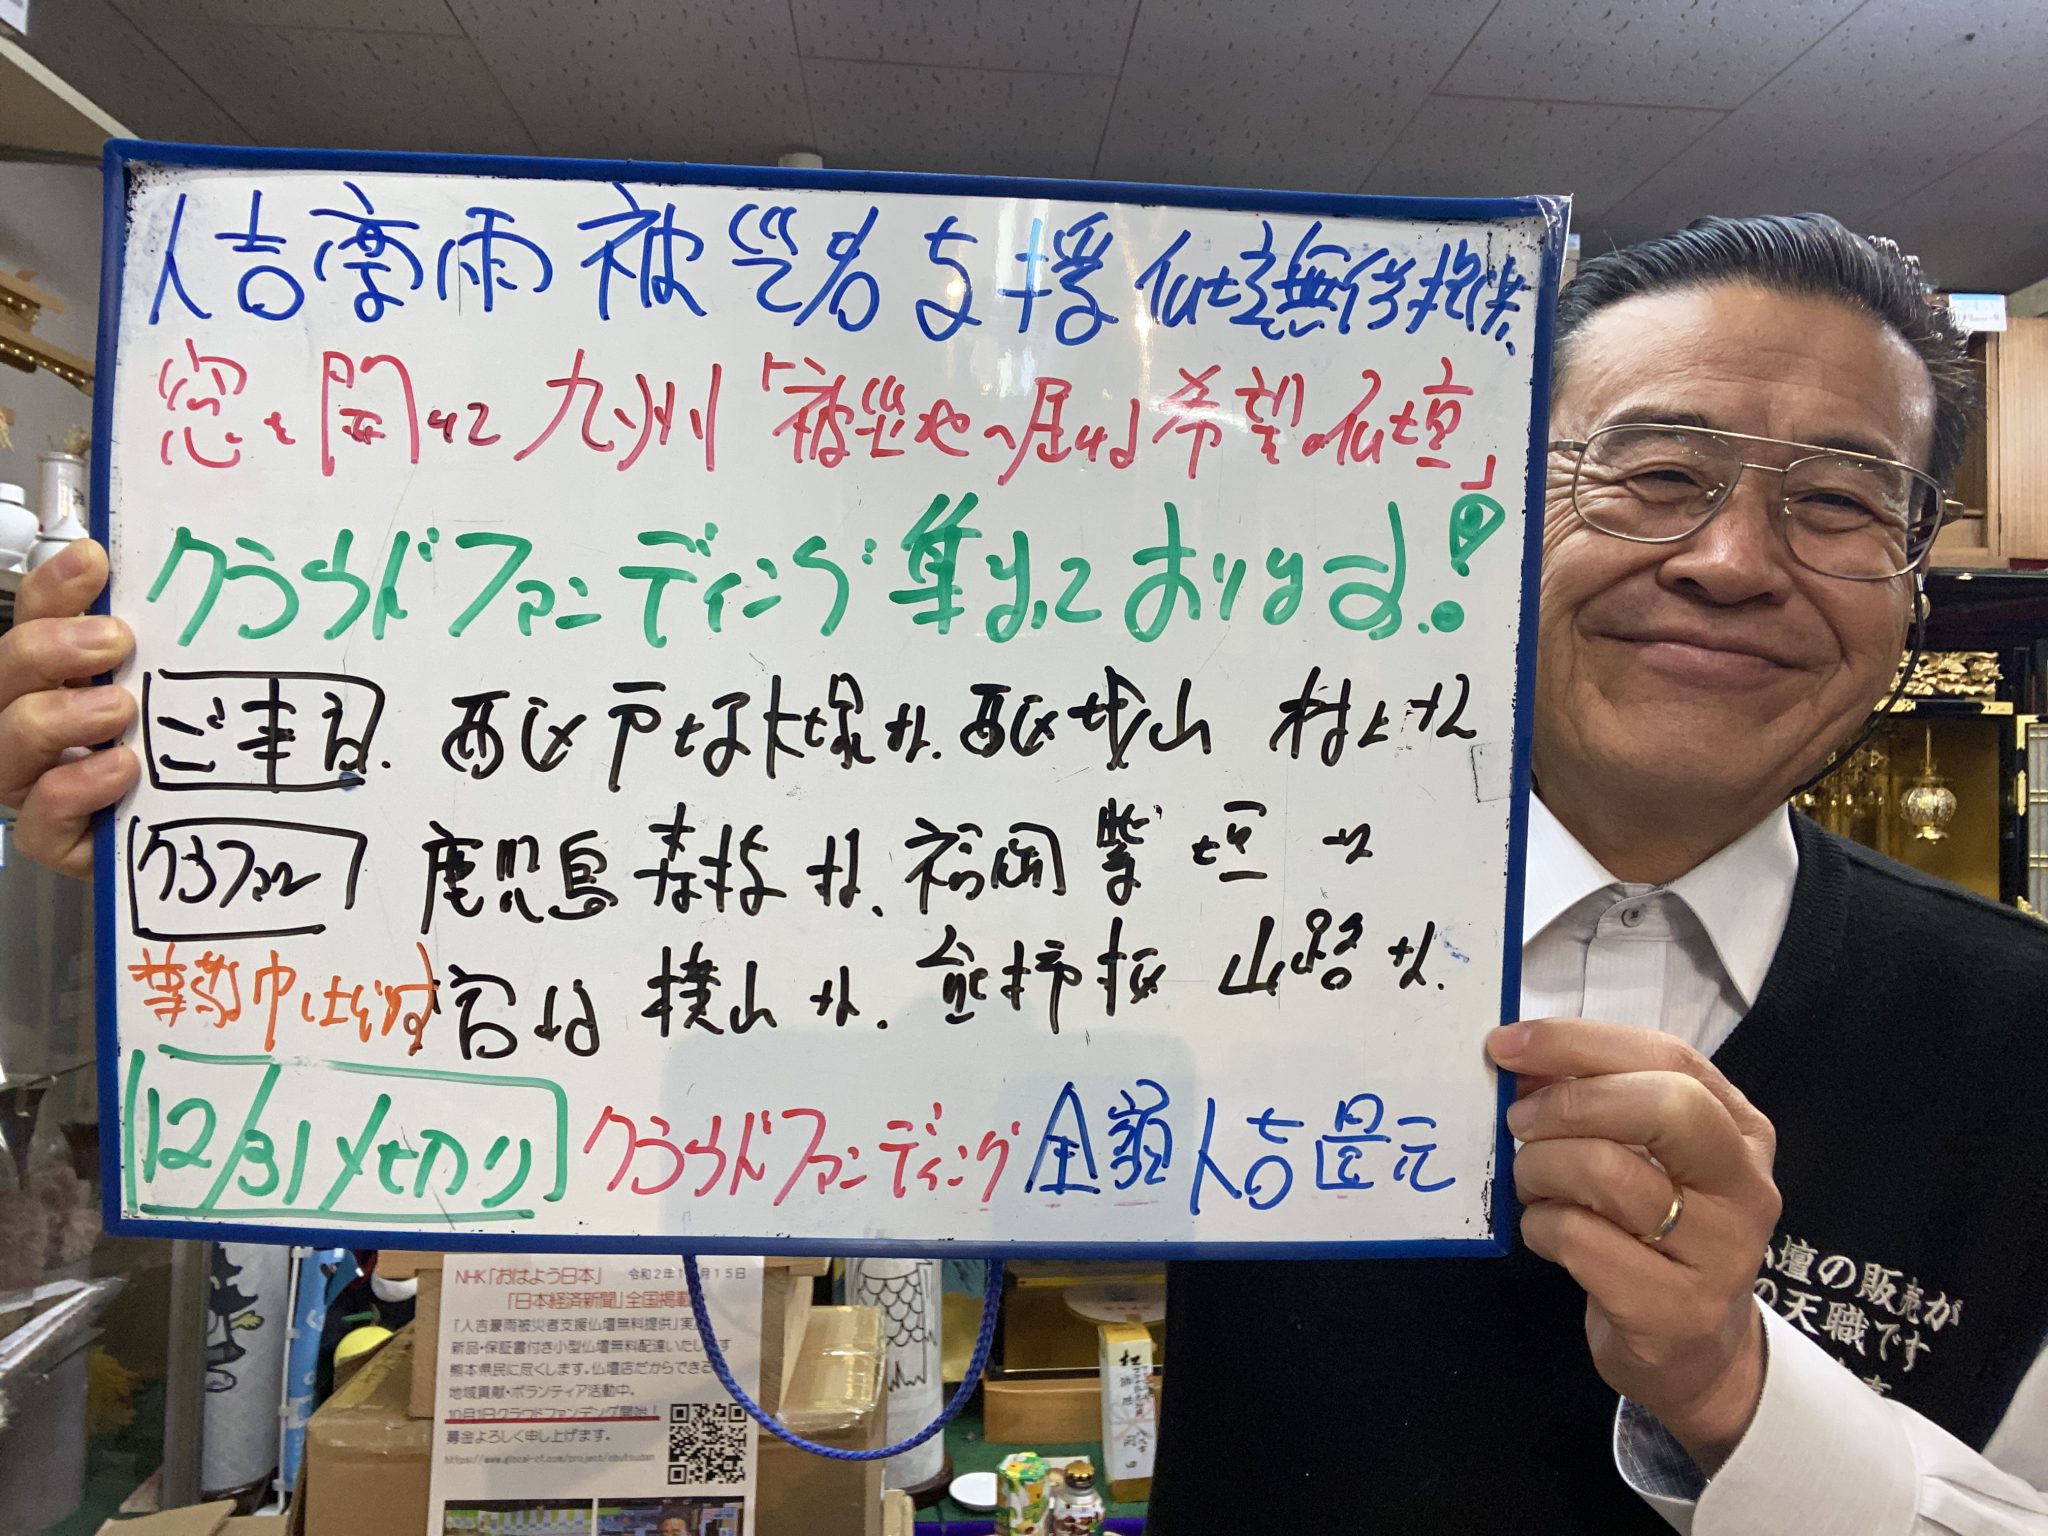 人吉豪雨被災者支援仏壇無償提供.
窓を開けて九州「被災地へ届け希望の仏壇」
クラウドファンディング集まっております!
ご来店. 西区戸坂大塚さん. 西区城山 村上さん
クラファン 鹿児島 森枝さん、福岡 紫垣さん
募金は宮崎 横山さん. 熊本 山路さん.
12/31〆切り クラウドファンディング全額人吉還元
NHK「おはよう日本」 令和2年1 月15日
「日本経済新聞」全国掲載
「人吉豪雨被災者支援仏壇無料提供」実
新品・保証書付き小型仏壇無料配達いたします
熊本県民に尽くします。仏壇店だからできる
地域貢献・ボランティア活動中。
10月1日クラウドファンディング開始!
募金よろしく申し上げます。
https://www.glocal-cf.com/project/obutsudan
仏壇の販売が
の天職です